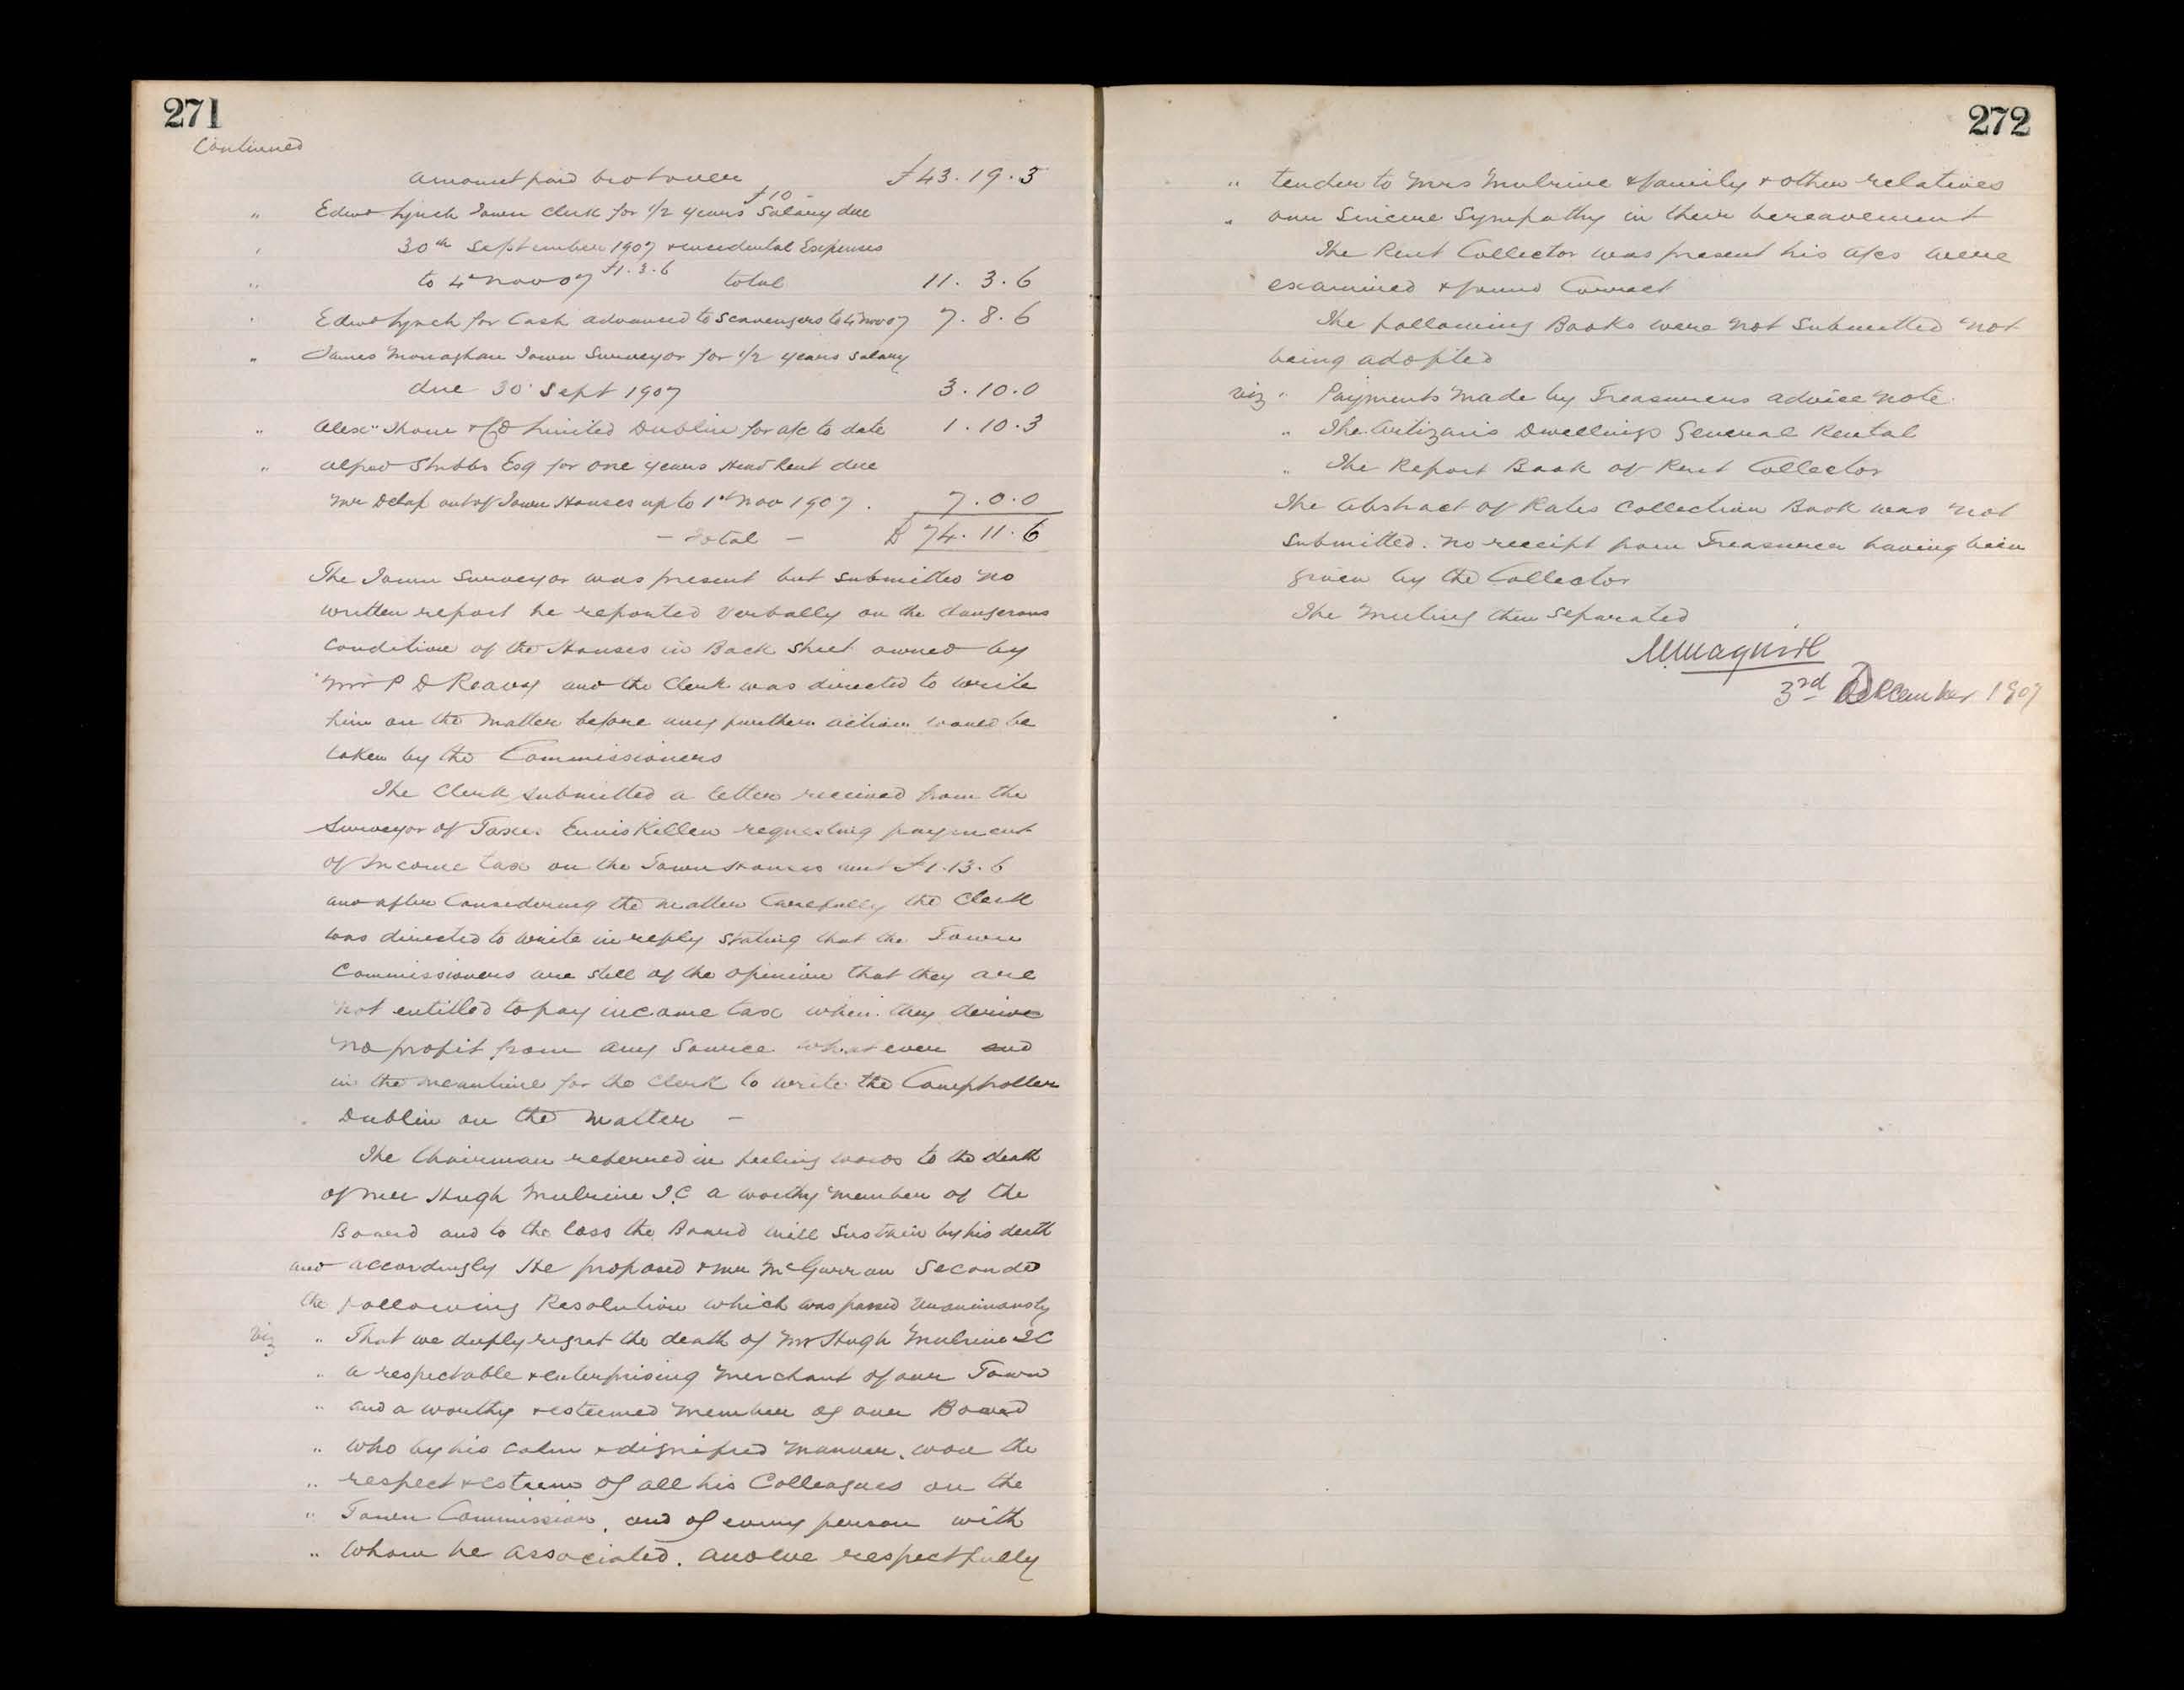 271
Continued
Amount paid brot over £43.19.3
£10 -
" Edwd Lynch Town Clerk for 1/2 years Salary due
" 30th September 1907 & incidental Expenses
" to 4 Nov 07 £1.3.6 total 11.3.6
" Edwd Lynch for Cash advanced to Scavengers to 4 Nov 07 7.8.6
" James Monaghan Town Surveyor for 1/2 years Salary
due 30 Sept 1907 3.10.0
" Alex" Thom & Co Limited Dublin for a/c to date 1.10.3
" Alfred Stubbs Esq for one years Head Rent due
Mr Delap out of Town Houses up to 1st Nov 1907. 7.0.0
- Total - 74.11.6
The Town Surveyor was present but submitted no
written report he reported Verbally on the dangerous
Condition of the Houses in Back Street owned by
Mr P D Reavy and the Clerk was directed to write
him on the matter before any further action would be
taken by the Commissioners
The Clerk submitted a letter received from the
Surveyor of Taxes Enniskillen requesting payment
of Income tax on the Town Houses amt £1.13.6
and after Considering the matter Carefully the Clerk
was directed to write in reply stating that the Town
Commissioners are still of the opinion that they are
not entitled to pay income tax when they derive
no profit from any Source whatever and
in the meantime for the Clerk to write the Comptroller
Dublin on the matter -
The Chairman referred in feeling words to the death
of Mr Hugh Mulrine T.C a worthy member of the
Board and to the loss the Board will Sustain by his death
and accordingly He proposed & Mr McGurran Seconded
the following Resolution which was passed Unanimously
Viz " That we deeply regret the death of Mr Hugh Mulrine T.C
" a respectable & enterprising Merchant of our Town
" and a worthy & esteemed Member of our Board
" who by his calm & dignified manner, won the
" respect & esteem of all his Colleagues on the
" Town Commission, and of every person with
" whom he associated. and we respectfully
272
" tender to Mrs Mulrine & family & other relatives
" our Sincere Sympathy in their bereavement
The Rent Collector was present his a/cs were
examined & found Correct
The following Books were not Submitted not
being adopted
viz " Payments made by Treasurers advice note.
" The Artizans Dwellings General Rental
" The Report Book of Rent Collector
The Abstract of Rates Collection Book was not
Submitted. No receipt from Treasurer having been
given by the Collector
The Meeting then Separated
M Maguire
3rd December 1907